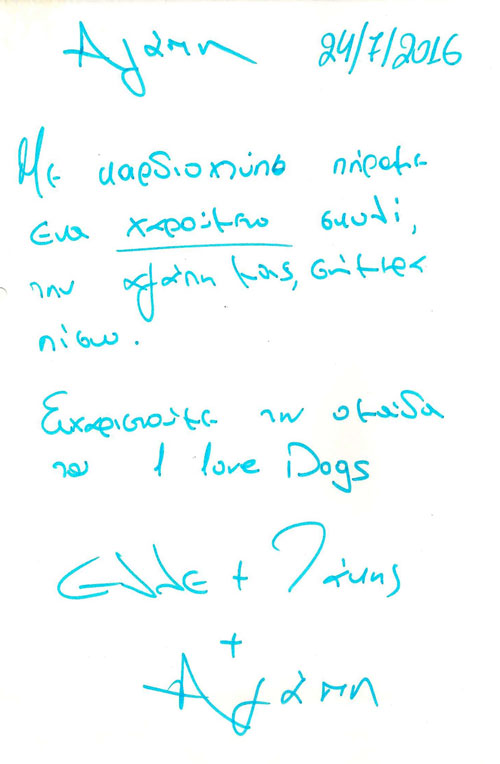 Αγάπη 24/7/2016
Με καρδιοχτύπι πήραμε
ενα χαρούμενο σκυλί,
την αγάπη μας, σήμερα
πίσω.
Ευχαριστούμε την ομάδα
του I love Dogs
+ Τάκης
+
Αγάπη